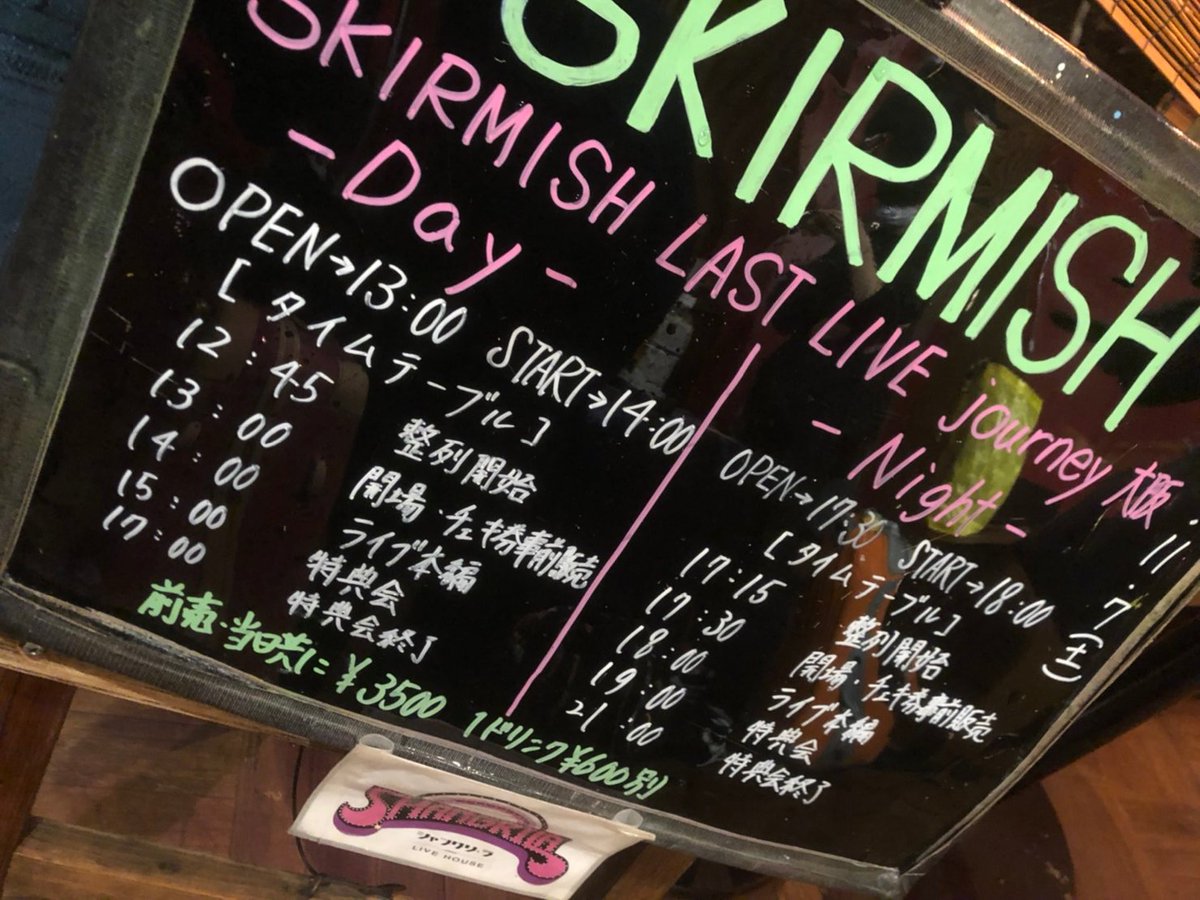 SKIRMISH
SKIRMISH LAST LIVE journey 大阪
11.7(土)
-Day-
OPEN→13:00 START→14:00
[タイムテーブル]
12:45 整列開始
13:00 開場・チェキ券事前販売
14:00 ライブ本編
15:00 特典会
17:00 特典会終了
-Night-
OPEN→17:30 START→18:00
[タイムテーブル]
17:15 整列開始
17:30 開場・チェキ券事前販売
18:00 ライブ本編
19:00 特典会
21:00 特典会終了
前売・当日共に¥3500 1ドリンク¥600別
SHANGRILA
シャングリラ
LIVE HOUSE